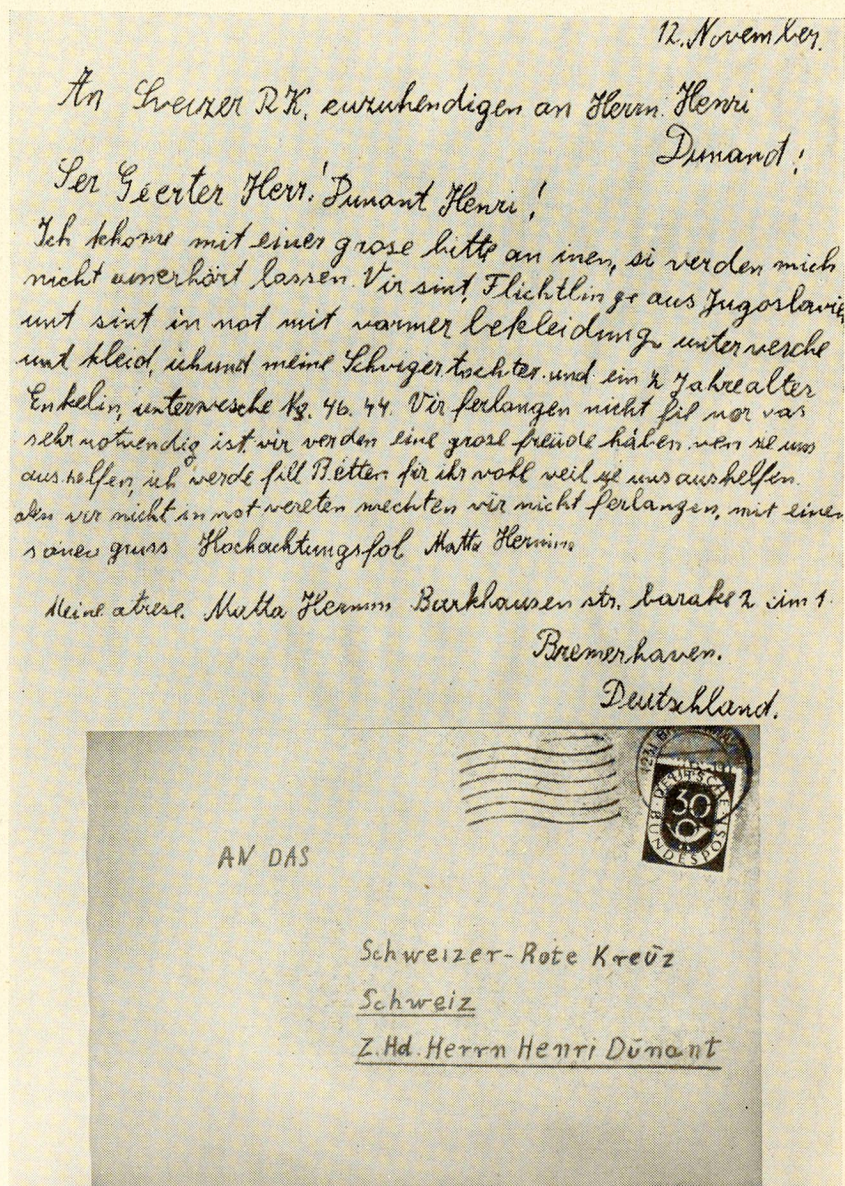 12. November.
An Sveizer RK, enzuhendigen an Herrn Henri
Dunand!
Ser Geerter Herr! Dunant Henri!
Ich khome mit einer grose bitte an inen, si verden mich
nicht unerhört lassen. Vir sint, Flichtlinge aus Jugoslavien
unt sint in not mit varmer bekleidung, untervesche
unt kleid, ich und meine Schvigertochter und ein 2 Jahrealter
Enkelin, untervesche No. 46. 44. Vir ferlangen nicht fil nor vas
sehr notvendig ist, vir verden eine grose freude haben ven sie uns
aushelfen, ich verde fill Betten fir ihr vohl veil sie uns aushelfen.
ven vir nicht in not vereten mechten vir nicht ferlangen, mit einen
sönen gruss Hochachtungsfol Matta
Meine atrese. Matta Burkhausen str. barake 2 zim 1.
Bremerhaven.
Deutschland.
DEUTSCHE
30
BUNDESPOST
AN DAS
Schweizer-Rote Kreuz
Schweiz
Z. Hd. Herrn Henri Dunant